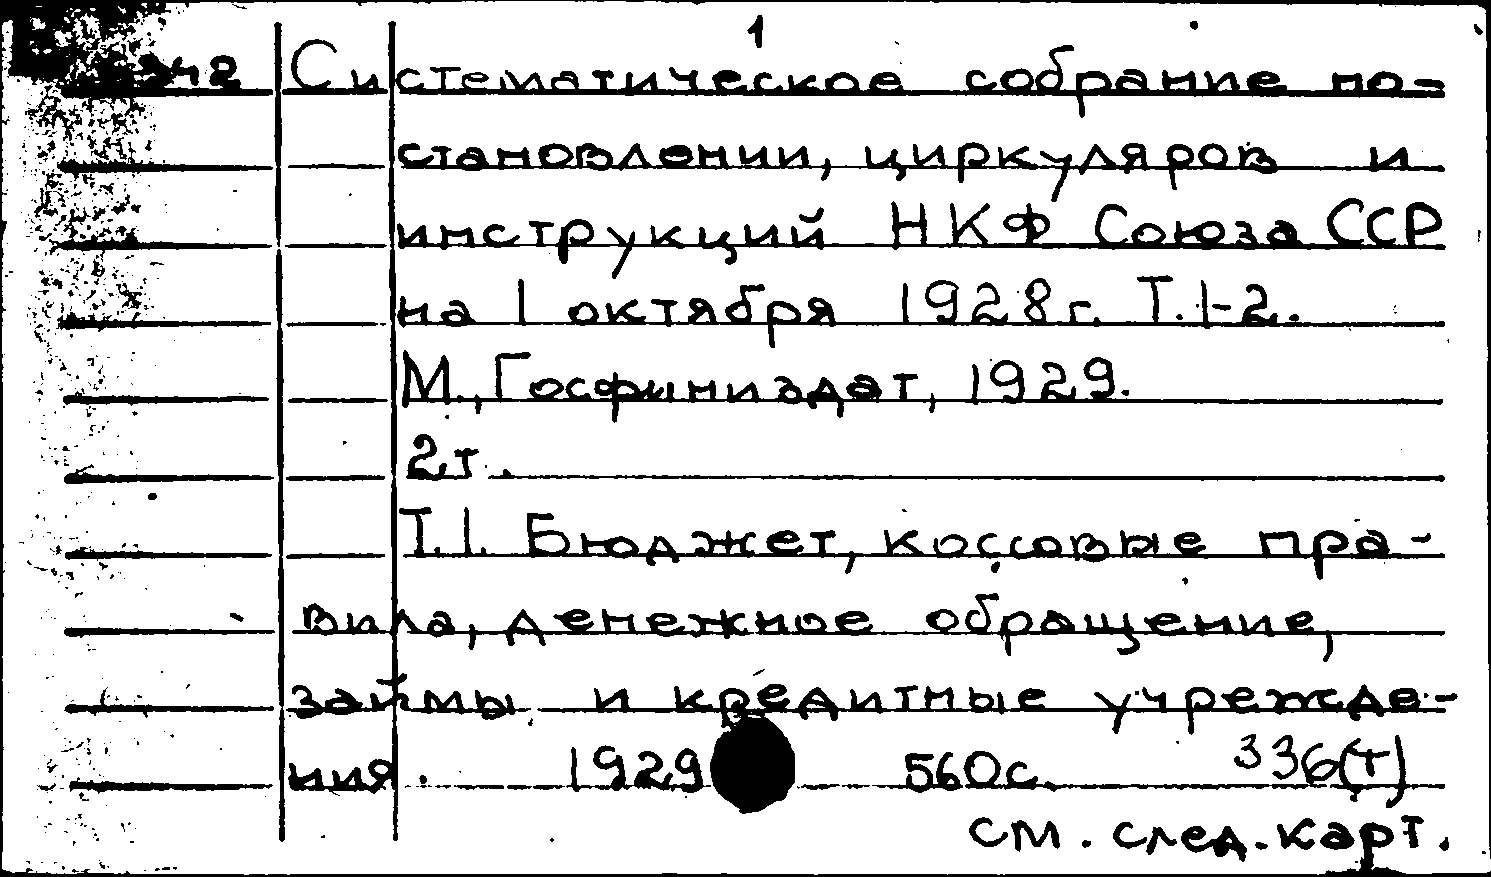 1
Систематическое собрание по-
становлении, циркуляров и
инструкций НКФ Союза ССР
на 1 октября 1928г. Т.1-2.
М., Госфиниздат, 1929.
2т.
Т.1. Бюджет, коссовые пра-
вила, денежное обращение,
займы и кредитные учрежде-
ния. 1929 560с. 336(т)
см. след. карт.